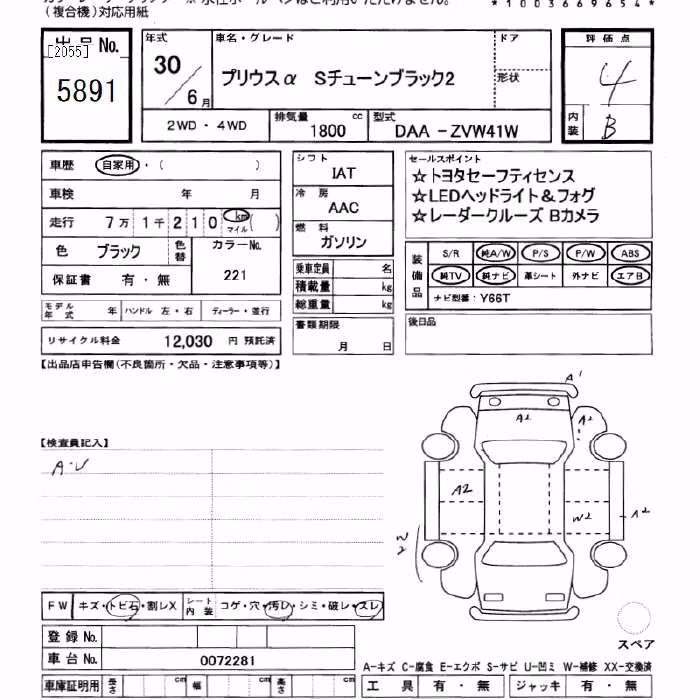 (複合機)対応用紙
*1003669654*
出品No.
[2055]
5891
年式
30/6月
車名・グレード
プリウスα Sチューンブラック2
ドア
形状
評価点
4
内装
B
2WD・4WD
排気量 1800 cc
型式 DAA-ZVW41W
車歴 自家用・( )
車検 年 月
走行 7万1千210 km マイル ( )
色 ブラック 色替 カラーNo. 221
保証書 有・無
モデル年式 年 ハンドル 左・右 ディーラー・並行
リサイクル料金 12,030 円 預託済
シフト
IAT
冷房
AAC
燃料
ガソリン
乗車定員 名
積載量 kg
総重量 kg
書類期限
月 日
セールスポイント
☆トヨタセーフティセンス
☆LEDヘッドライト&フォグ
☆レーダークルーズ Bカメラ
装備品
S/R 純A/W P/S P/W ABS
純TV 純ナビ 革シート 外ナビ エアB
ナビ型番: Y66T
後日品
【出品店申告欄(不良箇所・欠品・注意事項等)】
【検査員記入】
A・U
A1
A2
A2
A2
W2
A2
W2
スペア
FW キズ・トビ石・割レX シート内装 コゲ・穴・汚レ・シミ・破レ・スレ
登録No.
車台No. 0072281
車庫証明用 長さ cm 幅 cm 高さ cm
A-キズ C-腐食 E-エクボ S-サビ U-凹ミ W-補修 XX-交換済
工具 有・無 ジャッキ 有・無